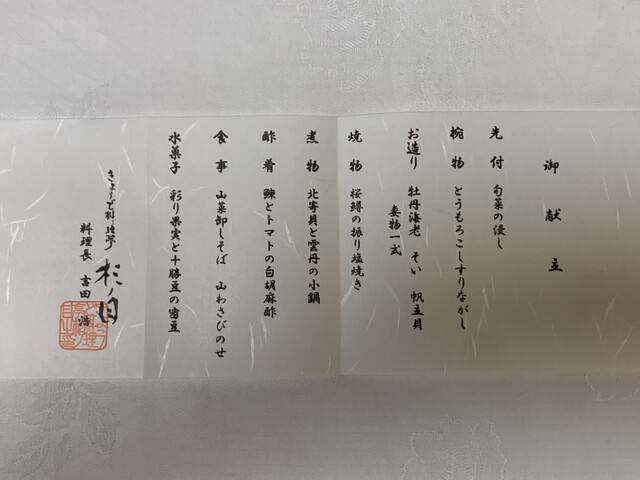 御献立
先付 旬菜の浸し
椀物 とうもろこしすりながし
お造り 牡丹海老 そい 帆立貝
妻物一式
焼物 桜鱒の振り塩焼き
煮物 北寄貝と雲丹の小鍋
酢肴 鰊とトマトの白胡麻酢
食事 山菜卸しそば 山わさびのせ
水菓子 彩り果実と十勝豆の蜜豆
杉ノ目
料理長 吉田 浩